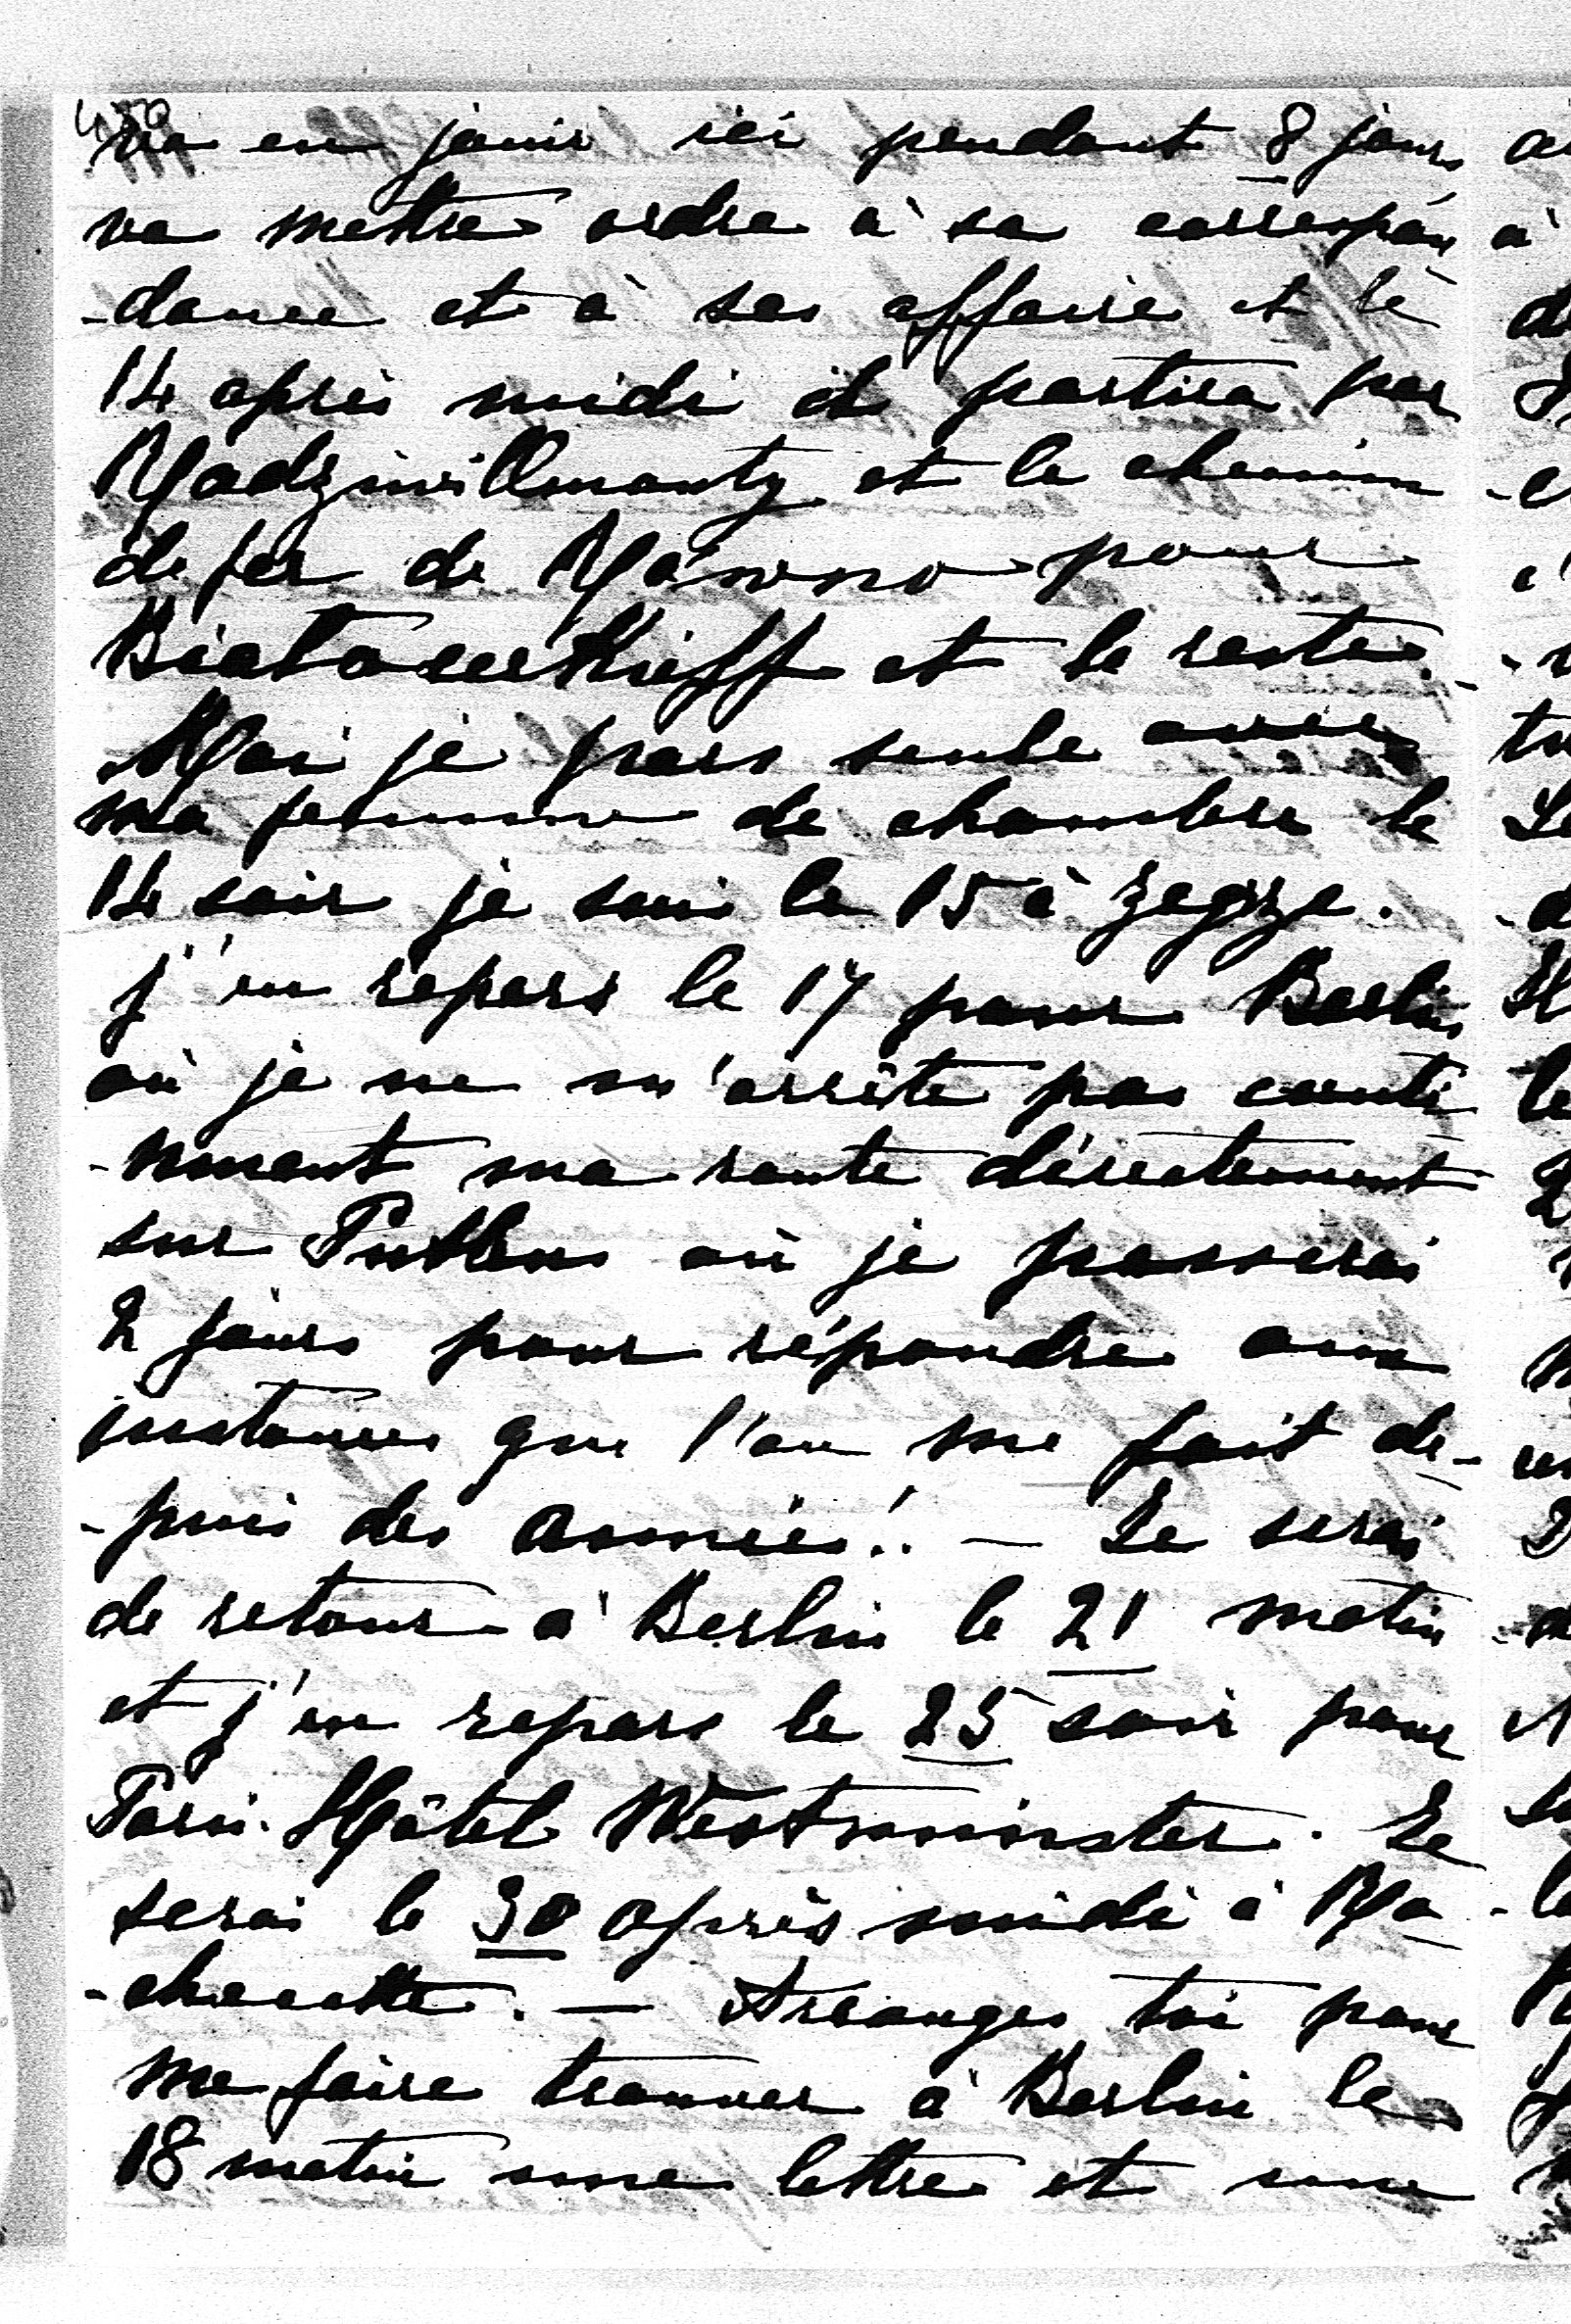 450
va en jouir ici pendant 8 jours
va mettre ordre à sa correspon
-dance et à ses affaires et le
14 après midi il partira par
Radziwillmonty et le chemin
de fer de Rowno pour
Biatocerkieff et le reste. -
Moi je pars seule avec
ma femme de chambre le
14 soir je suis le 15 à Zegrze.
j'en repars le 17 pour Berlin
où je ne m'arrête pas conti
-nuant ma route directement
sur Putbus où je passerai
2 jours pour répondre aux
instances que l'on me fait de-
-puis des années!. — Je serai
de retour à Berlin le 21 matin
et j'en repars le 25 soir pour
Paris. Hôtel Westminster. Je
serai le 30 après midi à Ro
-checotte. — Arranges toi pour
me faire trouver à Berlin le
18 matin une lettre et une